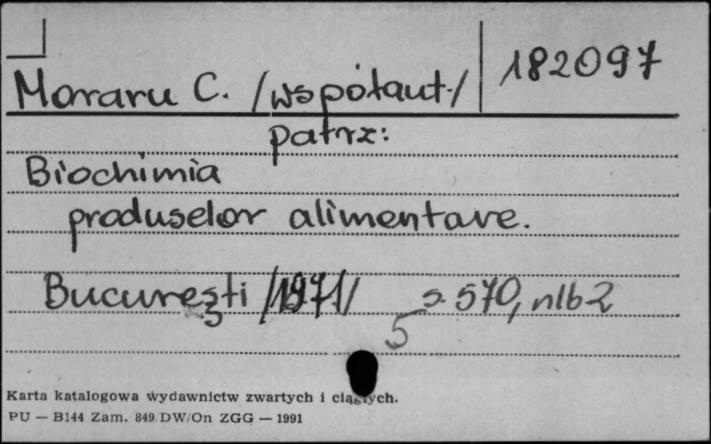 Moraru C. /współaut./ 182097
patrz:
Biochimia
produselor alimentare.
București /1971/ s. 570, nlb 2
5
Karta katalogowa wydawnictw zwartych i ciągłych.
PU — B144 Zam. 849/DW/On ZGG — 1991